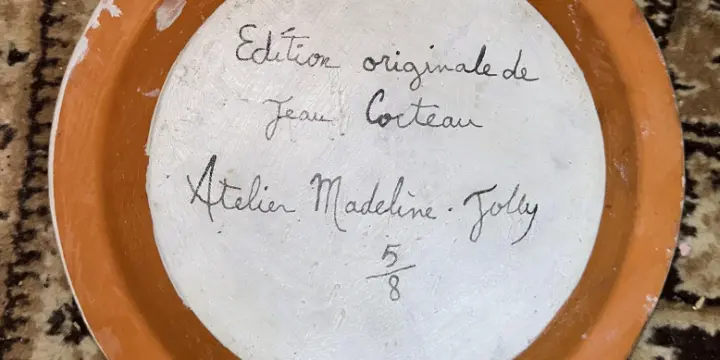 Edition originale de
Jean Cocteau
Atelier Madeline. Jolly
5/8